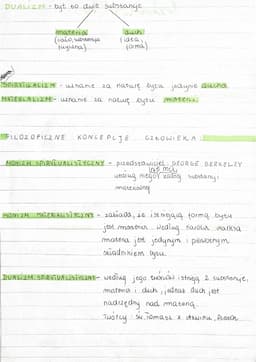 DUALIZM - byt to dwie substancje
materia duch
(ciało, (idea,
fizyczna) forma)
SPIRYTUALIZM - uznanie za naturę bytu jedynie ducha
MATERIALIZM - uznanie za naturę bytu materii.
FILOZOFICZNE KONCEPCJE CZŁOWIEKA
MONIZM SPIRYTUALISTYCZNY - przedstawiciel GEORGE BERKELEY
według niego
MONIZM MATERIALISTYCZNY - zakłada, że istniejącą formą bytu
jest materia. Według
materia jest jedynym i pierwotnym
składnikiem bytu.
DUALIZM SPIRYTUALISTYCZNY - według jego twórców istnieją 2 substancje,
materia i duch, jednak duch jest
nadrzędny nad materią.
Twórcy: św. Tomasz z Akwinu, Platon